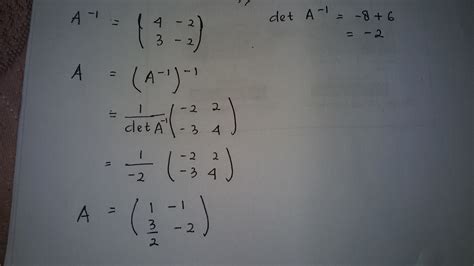 A⁻¹ = ( 4 -2
3 -2 )
det A⁻¹ = -8 + 6
= -2
A = (A⁻¹)⁻¹
= 1/det A⁻¹ ( -2 2
-3 4 )
= 1/-2 ( -2 2
-3 4 )
A = ( 1 -1
3/2 -2 )